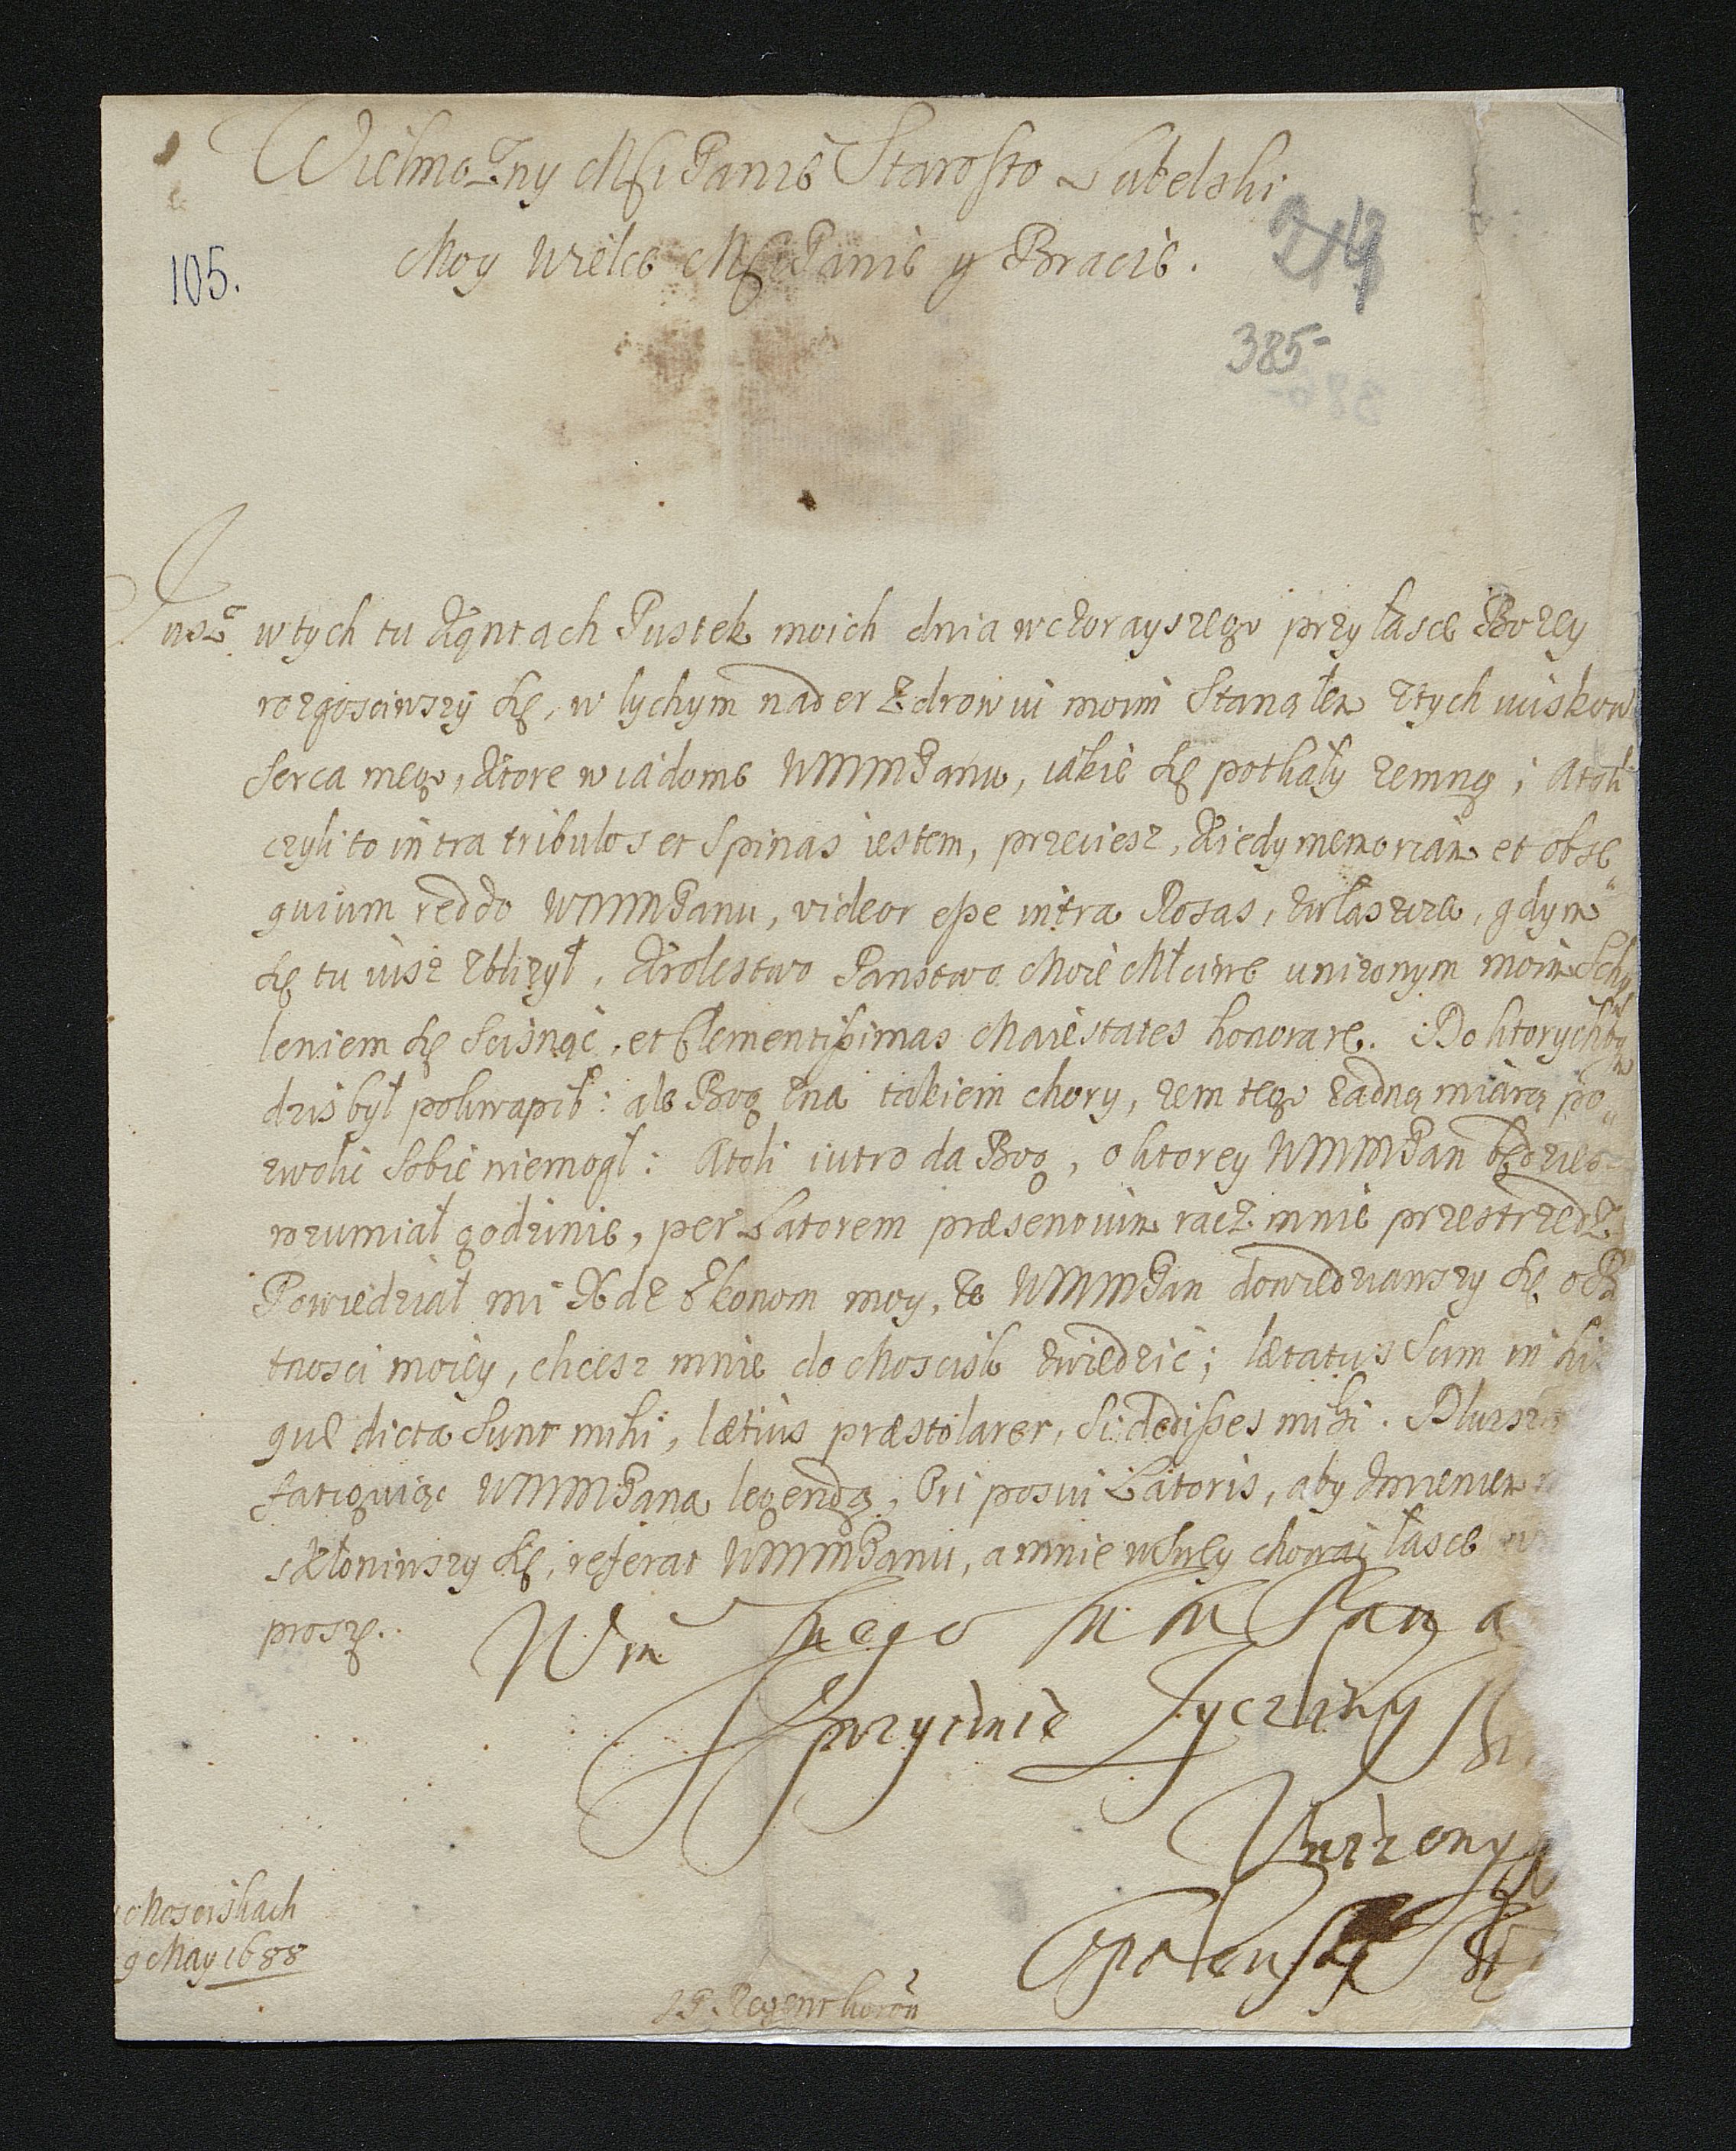 Wielmozny Msci Panie Starosto Lubelski
Moy Wielce Msci Panie y Bracie.
105.
244
385-
Jusz w tych tu Kątach Pustek moich dnia wczorayszego przy łasce Bozey
rozgosciwszy się, w lychym nader zdrowiu moim stanąłem z tych uciskow
serca mego, ktore wiadome WMMPanu, iakie się potkały zemną; Atoli
czyli to intra tribulos et spinas iestem, przeciesz, kiedy memoriam et obse
quium reddo WMMPanu, videor esse intra Rosas, zwłaszcza, gdym
się tu iusz zblizył, Krolestwo Panstwo Moie Mſciwe unizonym moim Schy
leniem się scisnąć, et Clementissimas Maiestates honorare. Do ktorych bym
dzis był pokwapił: ale Bog zna takiem chory, zem tego zadną miarą po
zwolic sobie niemogł: Atoli iutro da Bog, o ktorey WMMPan będziesz
rozumiał godzinie, per Latorem præsentium racz mnie przestrzedz
Powiedział mi Xdz Ekonom moy, ze WMMPan dowiedziawszy się o B
tnosci moiey, chcesz mnie do Moscisk zwiedzić; lætatus sum in his
quæ dicta sunt mihi, lætius præstolarer, si dedisses mihi. Dluzszą
fatiguiąc WMMPana legendą, Ori posui Latoris, aby imieniem
skłoniwszy się, referat WMMPanu, a mnie w swey choway łasce
proszę.
Wm mego M M Pana
przyjmie Zyczliwy Br
Unizony
Opalenski
Mosciskach
9 May 1688
J.P. Regent koron